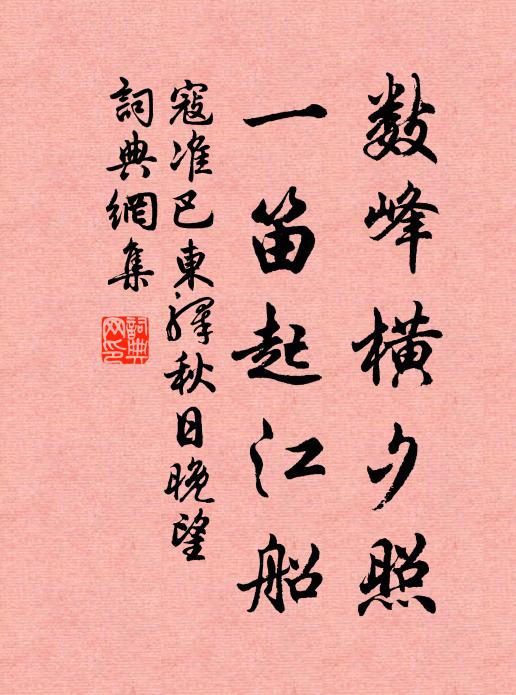 數峰橫夕照
一笛起江船
寇准巴東驛秋日晚望
詞典網集
詞典网印